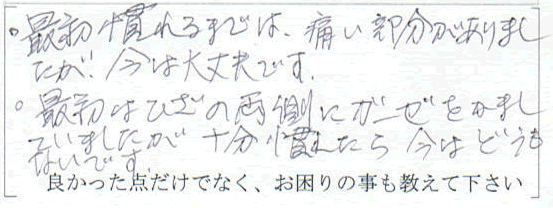 。最初慣れるまでは、痛い部分がありまし
たが、今は大丈夫です。
。最初はひざの両側にガーゼをかまし
ていましたが十分慣れたら今はどうも
ないです。
良かった点だけでなく、お困りの事も教えて下さい